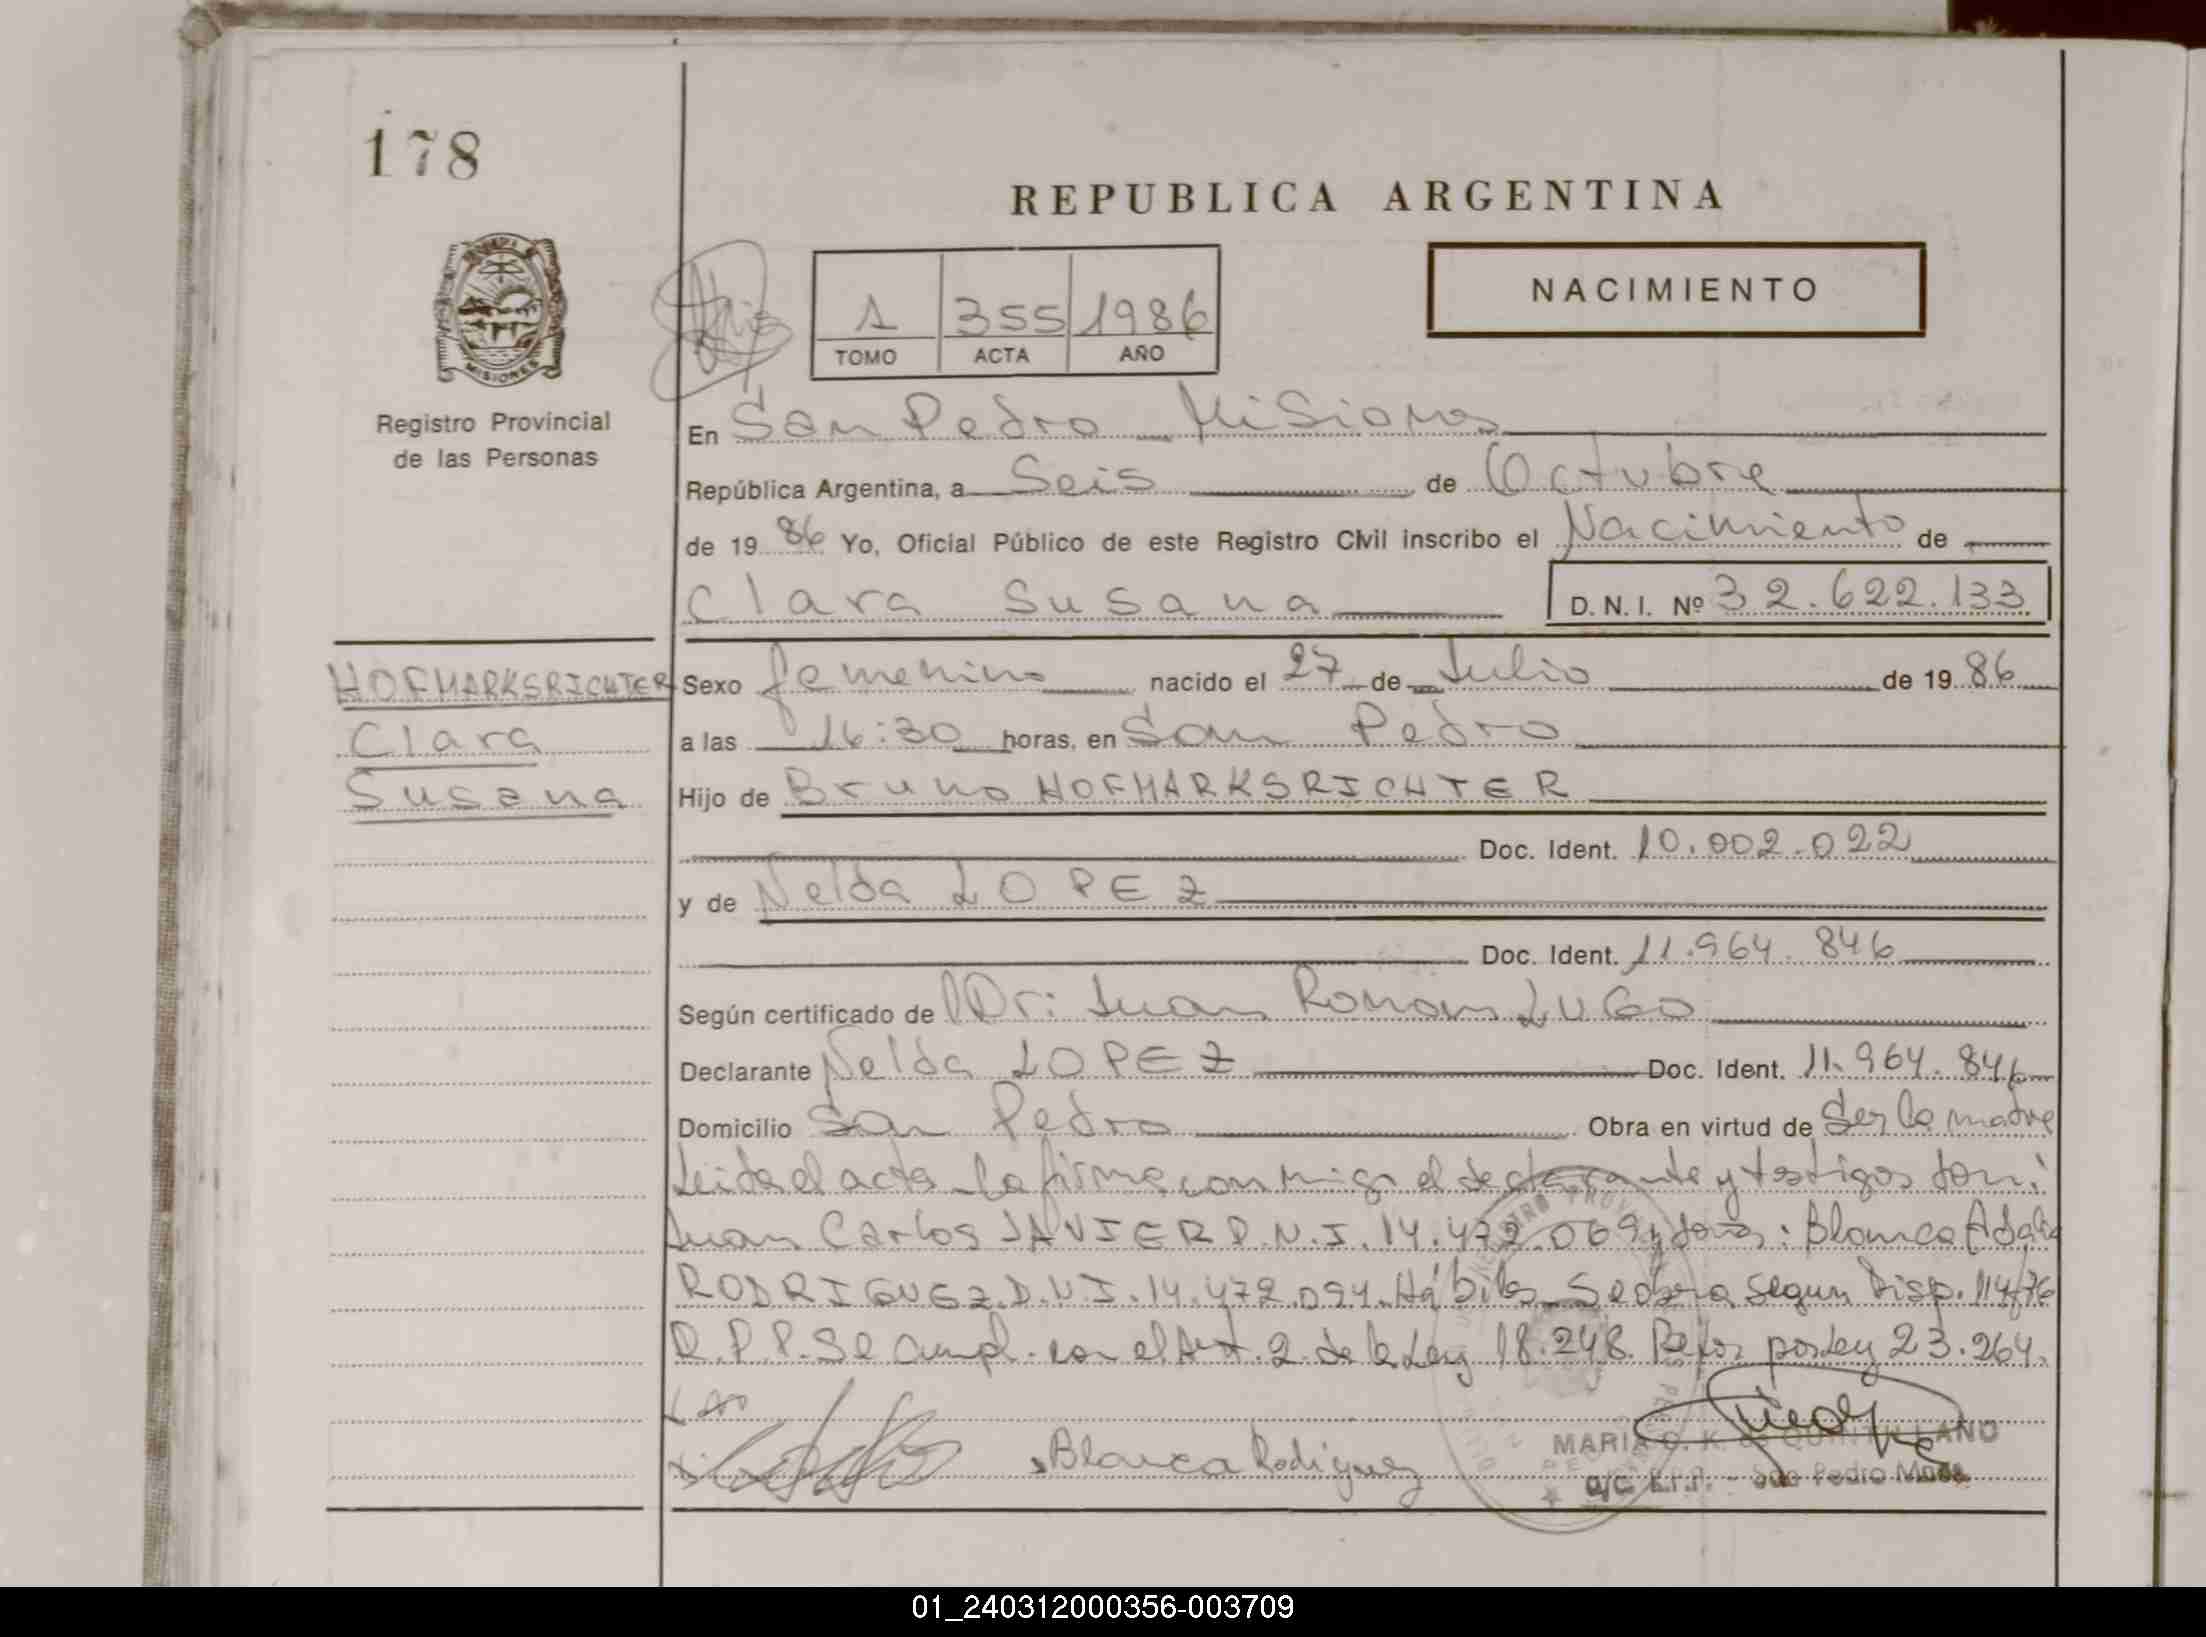 178
REPUBLICA ARGENTINA
NACIMIENTO
1 355 1986
TOMO ACTA AÑO
MISIONES
Registro Provincial
de las Personas
En San Pedro Misiones
República Argentina, a Seis de Octubre
de 19 86 Yo, Oficial Público de este Registro Civil inscribo el Nacimiento de
Clara Susana D. N. I. Nº 32.622.133
HOFMARKSRICHTER
Clara
Susana
Sexo femenino nacido el 27 de Julio de 19 86
a las 16:30 horas, en San Pedro
Hijo de Bruno HOFMARKSRICHTER
Doc. Ident. 10.002.022
y de Nelda LOPEZ
Doc. Ident. 11.964.846
Según certificado de Dr: Juan Roman LUGO
Declarante Nelda LOPEZ Doc. Ident. 11.964.846
Domicilio San Pedro Obra en virtud de Ser la madre
Leida el acta la firma conmigo el declarante y testigos don:
Juan Carlos JAVIER D.N.I. 14.472.069 y doña: Blanca Adelia
RODRIGUEZ D.N.I. 14.472.094. Hábiles Se obra segun Disp. 114/76
R.P.P. Se cumpl. con el Art. 2 de la Ley 18.248. Refor por Ley 23.264.
Blanca Rodriguez
MARIA K. de QUINTILLANO
a/c R.P.P. - San Pedro Mnes.
01_240312000356-003709